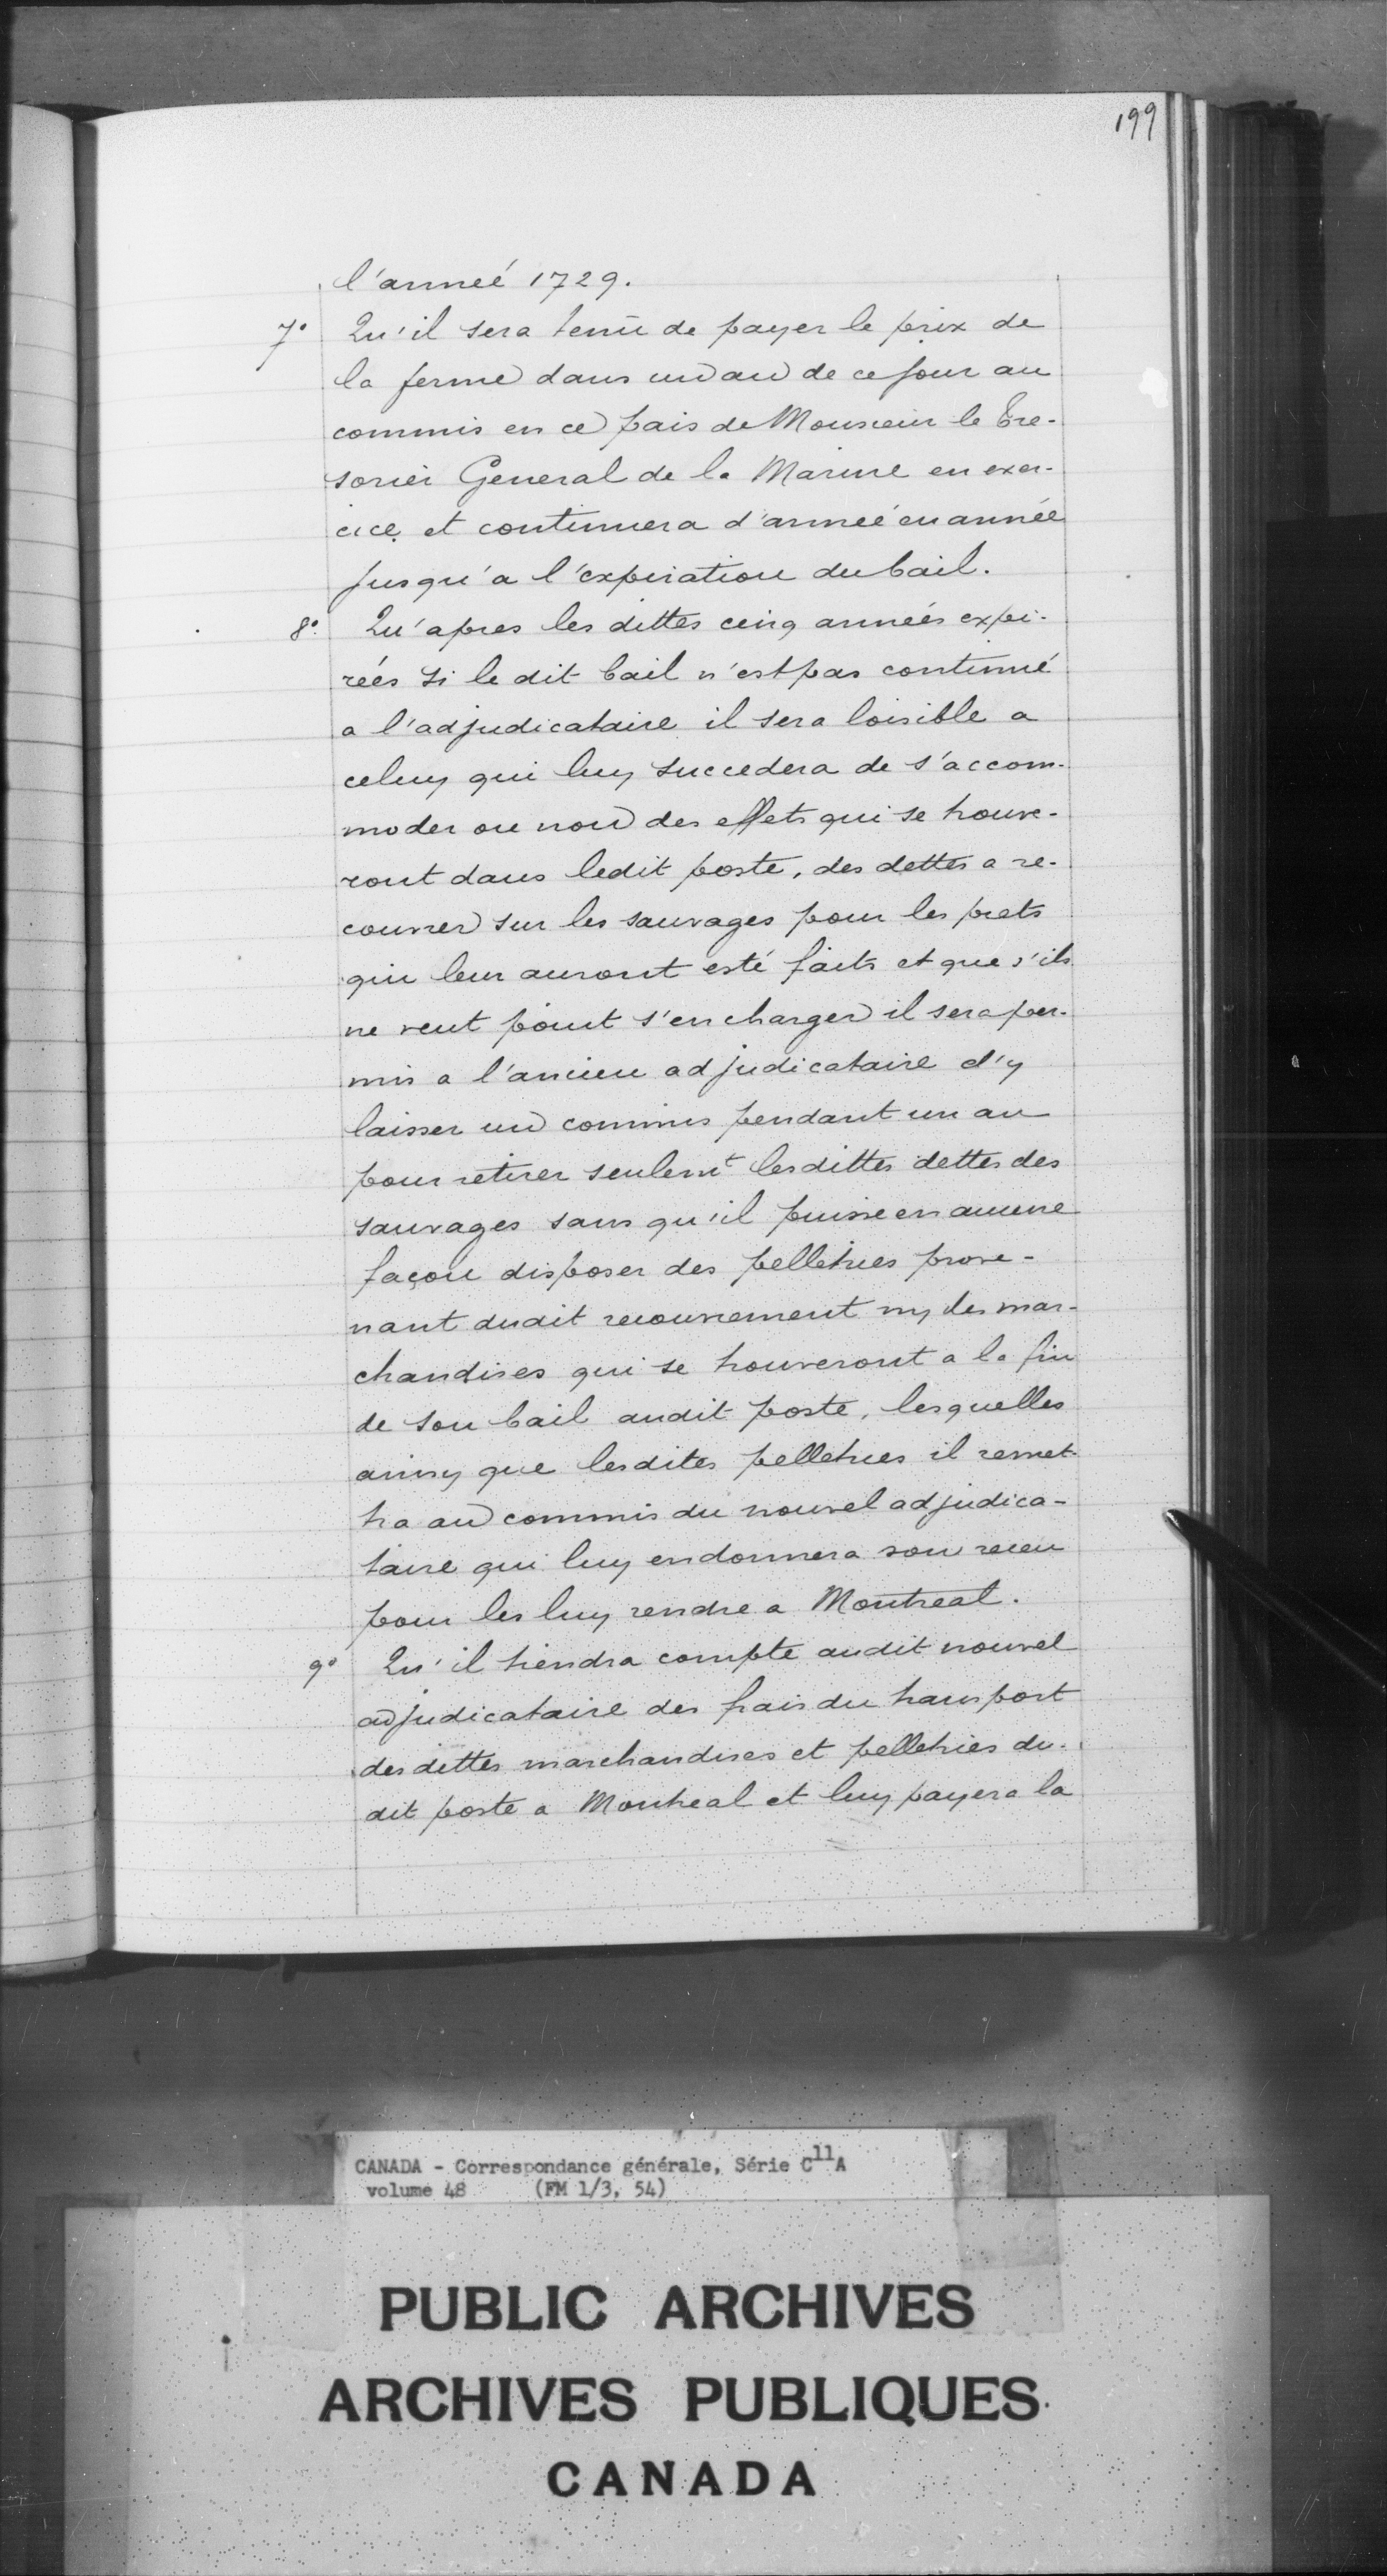 199
l'anneé 1729.
7° Qu'il sera tenu de payer le prix de
la ferme dans un an de ce jour au
commis en ce pais de Monsieur le Tre-
sorier General de la Marine en exer-
cice et continuera d'anneé en année
jusqu'a l'expiration du bail.
8° Qu'apres les dittes cinq années expi-
reés si le dit bail n'est pas continué
a l'adjudicataire il sera loisible a
celuy qui luy succedera de s'accom-
moder ou non des effets qui se trouve-
ront dans ledit poste, des dettes a re-
couvrer sur les sauvages pour les prets
qui leur auront esté faits et que s'ils
ne veut point s'en charger il sera per-
mis a l'ancien adjudicataire d'y
laisser un commis pendant un an
pour retirer seulemt lesdittes dettes des
sauvages sans qu'il puisse en aucune
façon disposer des pelletries prove-
nant dudit recouvrement ny des mar-
chandises qui se trouveront a la fin
de son bail audit poste, lesquelles
ainsy que lesdites pelletries il remet-
tra au commis du nouvel adjudica-
taire qui luy en donnera son receu
pour les luy rendre a Montreal.
9° Qu'il tiendra compte audit nouvel
adjudicataire des frais du transport
des dittes marchandises et pelletries du-
dit poste a Montreal et luy payera la
CANADA - Correspondance générale, Série C11A
volume 48 (FM 1/3, 54)
PUBLIC ARCHIVES
ARCHIVES PUBLIQUES
CANADA